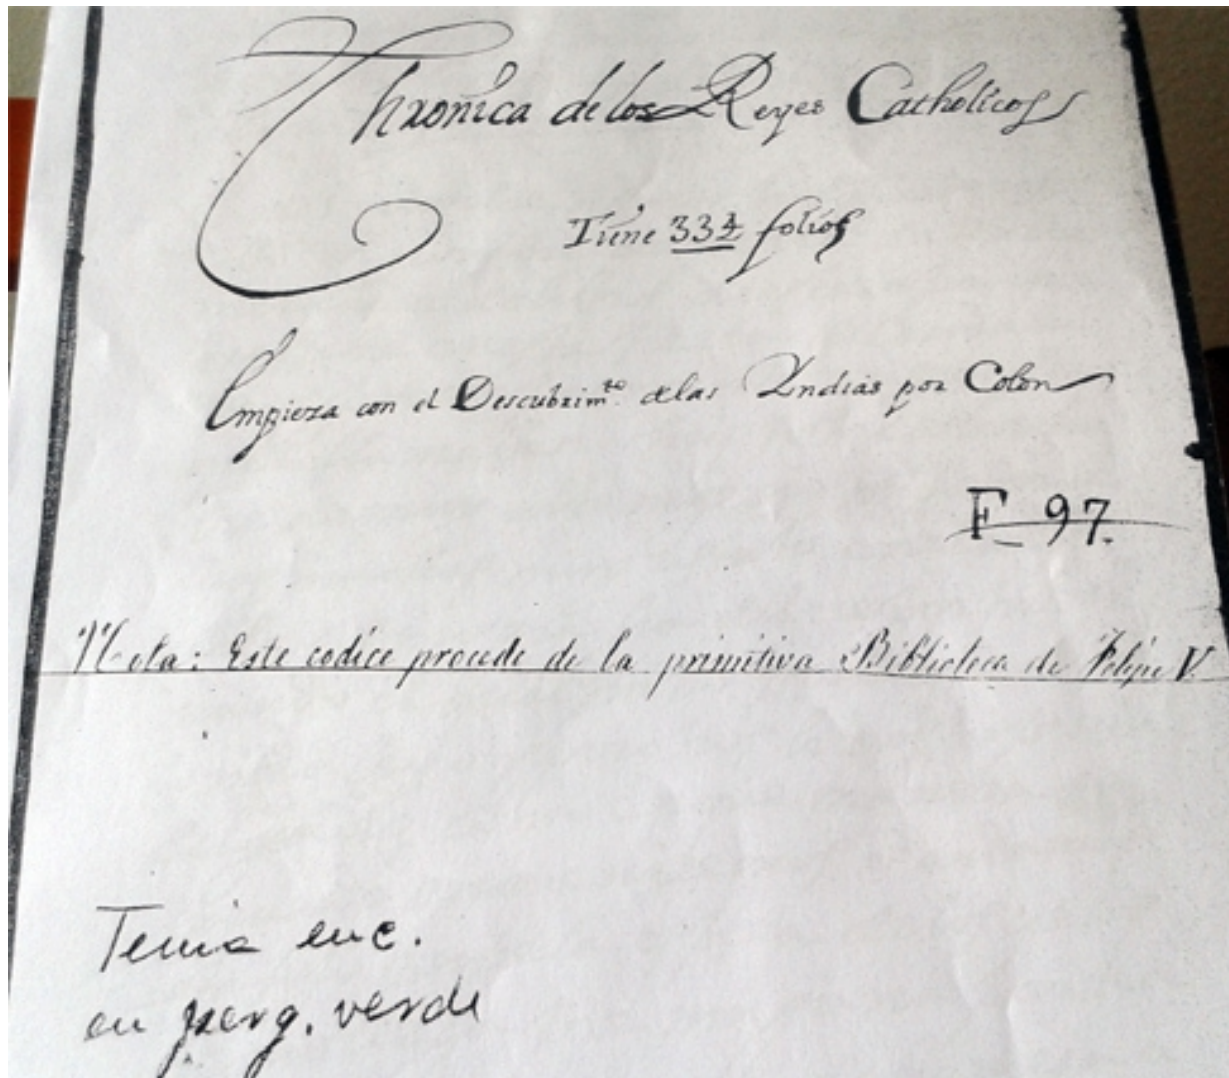 Chronica de los Reyes Catholicos
Tiene 334 folios
Empieza con el Descubrim.to de las Yndias por Colon
F 97.
Nota: Este codice procede de la primitiva Biblioteca de Felipe V.
Tenia enc.
en perg. verde